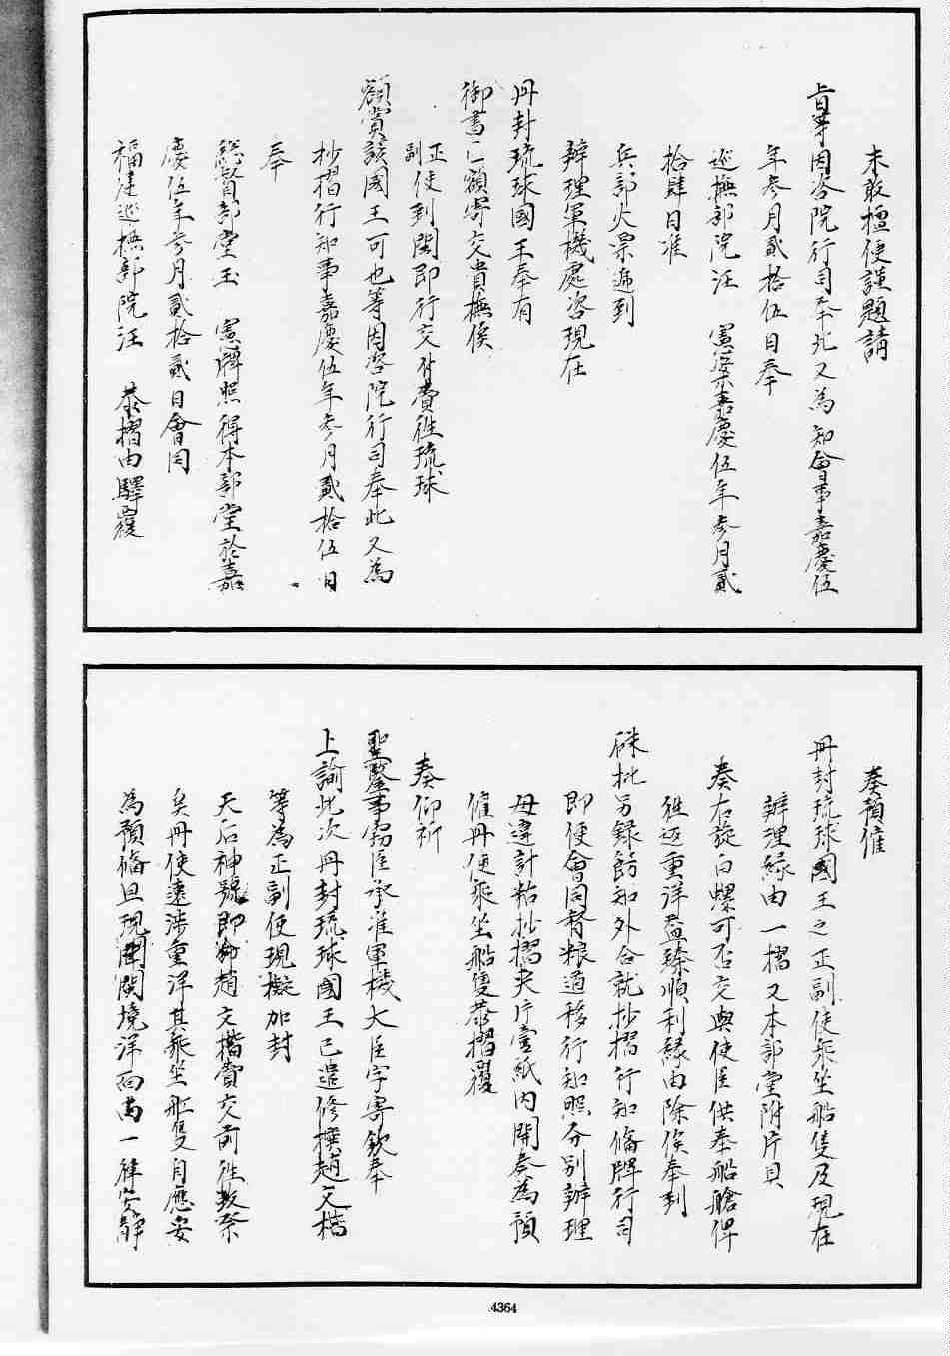 未敢擅便謹題請
旨等因咨院行司奉此又為知會事嘉慶伍
年叁月貳拾伍日奉
巡撫部院汪 憲案嘉慶伍年叁月貳
拾肆日准
兵部火票遞到
辦理軍機處咨現在
冊封琉球國王奉有
御書匾額寄交貴撫俟
正副使到閩即行交付賫往琉球
額賞該國王可也等因咨院行司奉此又為
抄摺行知事嘉慶伍年叁月貳拾伍日
奉
總督部堂玉 憲牌照得本部堂於嘉
慶伍年叁月貳拾貳日會同
福建巡撫部院汪 恭摺由驛覆
奏預催
冊封琉球國王之正副使乘坐船隻及現在
辦理緣由一摺又本部堂附片具
奏右旋白螺可否交與使臣供奉船艙俾
往返重洋益臻順利緣由除俟奉到
硃批另錄飭知外合就抄摺行知備牌行司
即便會同督糧道移行知照分別辦理
毋違計粘抄摺夾片壹紙內開奏為預
催冊使乘坐船隻恭摺覆
奏仰祈
聖鑒事竊臣承准軍機大臣字寄欽奉
上諭此次冊封琉球國王已遣修撰趙文楷
等為正副使現擬加封
天后神號即令趙文楷賫交前往致祭
矣冊使遠涉重洋其乘坐船隻自應妥
為預備且現閩境洋面尚一律安靜
4364